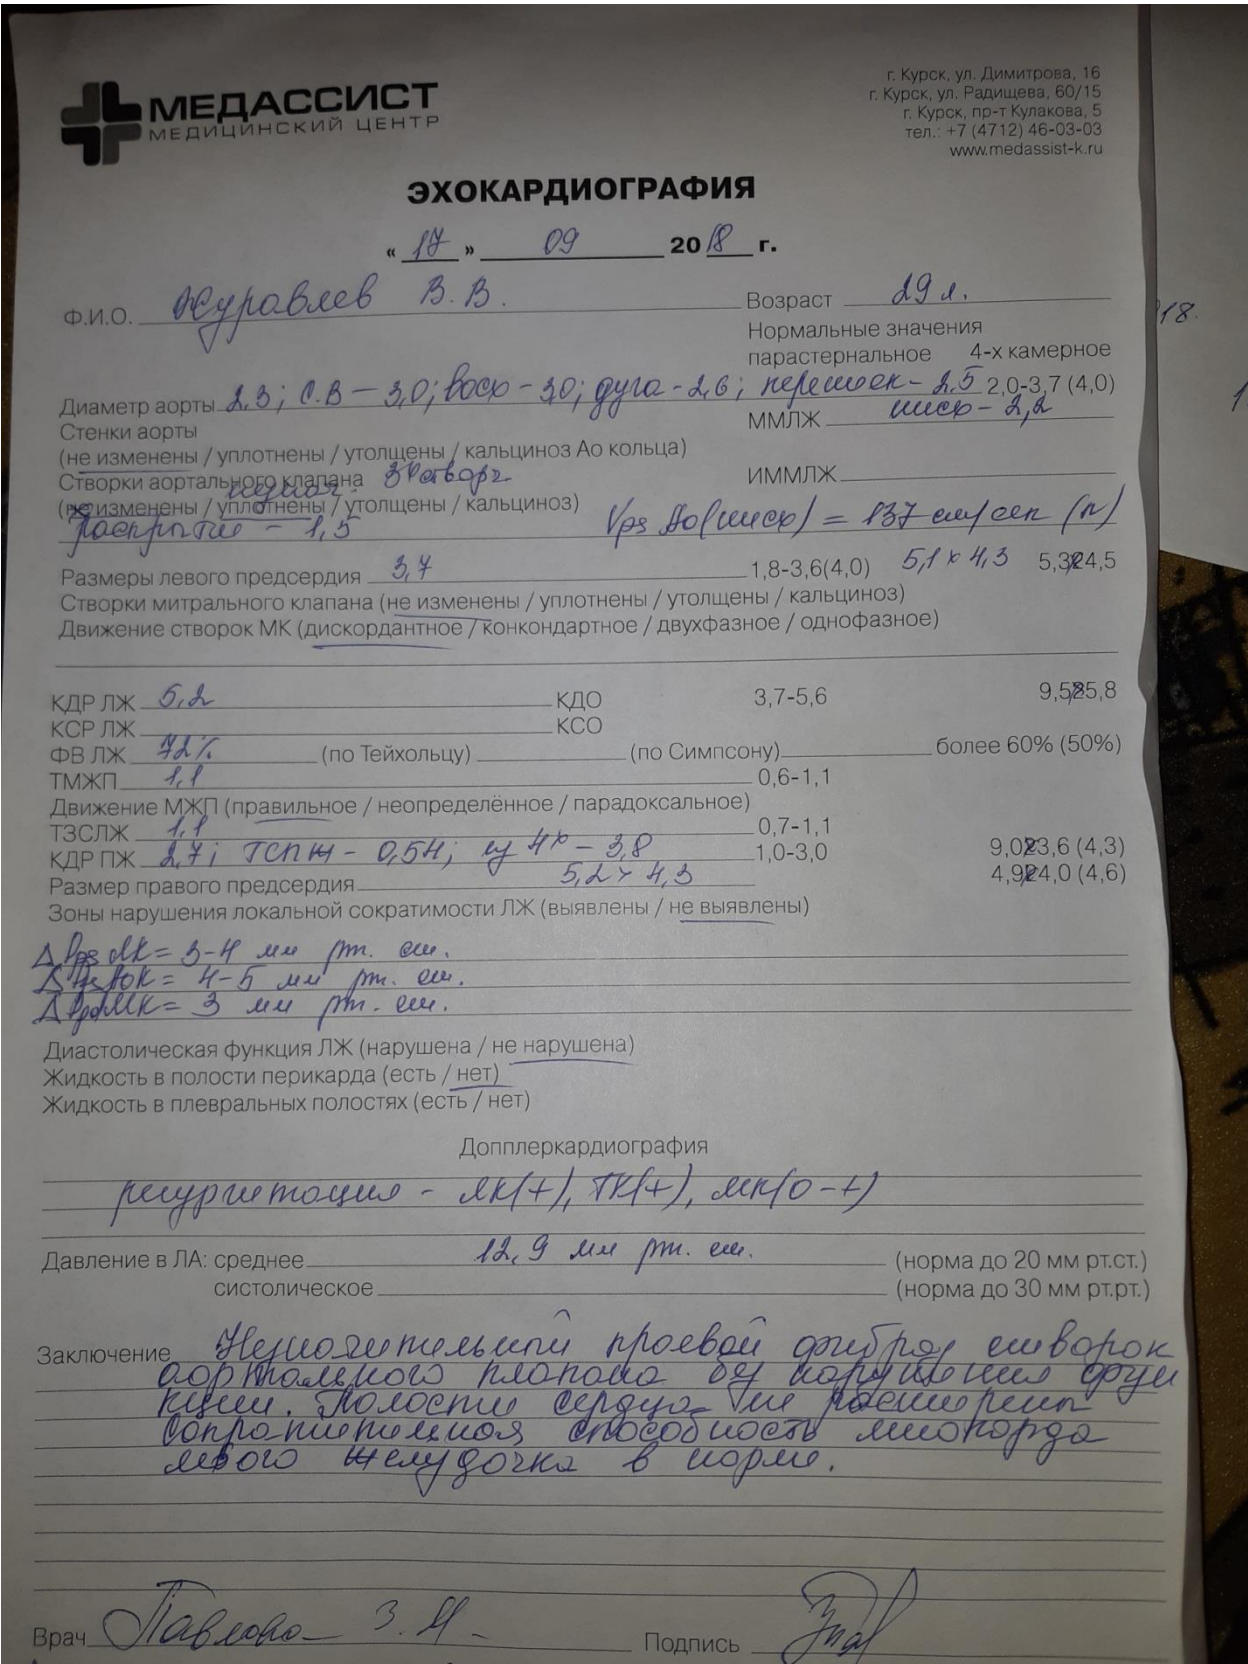 МЕДАССИСТ
МЕДИЦИНСКИЙ ЦЕНТР
г. Курск, ул. Димитрова, 16
г. Курск, ул. Радищева, 60/15
г. Курск, пр-т Кулакова, 5
тел.: +7 (4712) 46-03-03
www.medassist-k.ru
ЭХОКАРДИОГРАФИЯ
« 17 » 09 2018 г.
Ф.И.О. Журавлев В.В. Возраст 29 л.
Нормальные значения
парастернальное 4-х камерное
Диаметр аорты 2,3; С.В – 3,0; восх – 3,0; дуга - 2,6; перешеек – 2,5 2,0-3,7 (4,0)
Стенки аорты ММЛЖ нисх – 2,2
(не изменены / уплотнены / утолщены / кальциноз Ао кольца)
Створки аортального клапана 3х створч. ИММЛЖ
незнач.
(не изменены / уплотнены / утолщены / кальциноз)
раскрытие – 1,5 Vps Ao(нисх) = 137 см/сек (N)
Размеры левого предсердия 3,7 1,8-3,6(4,0) 5,1 х 4,3 5,3х4,5
Створки митрального клапана (не изменены / уплотнены / утолщены / кальциноз)
Движение створок МК (дискордантное / конкондартное / двухфазное / однофазное)
КДР ЛЖ 5,2 КДО 3,7-5,6 9,5х5,8
КСР ЛЖ КСО
ФВ ЛЖ 72% (по Тейхольцу) (по Симпсону) более 60% (50%)
ТМЖП 1,1 0,6-1,1
Движение МЖП (правильное / неопределённое / парадоксальное)
ТЗСЛЖ 1,1 0,7-1,1
КДР ПЖ 2,7; ТСПЖ – 0,54; из 4х – 3,8 1,0-3,0 9,0х3,6 (4,3)
Размер правого предсердия 5,2 х 4,3 4,9х4,0 (4,6)
Зоны нарушения локальной сократимости ЛЖ (выявлены / не выявлены)
Δ Pps ЛК = 3-4 мм рт. ст.
Δ Pps АоК = 4-5 мм рт. ст.
Δ Ppd МК = 3 мм рт. ст.
Диастолическая функция ЛЖ (нарушена / не нарушена)
Жидкость в полости перикарда (есть / нет)
Жидкость в плевральных полостях (есть / нет)
Допплеркардиография
регургитация – ЛК(+), ТК(+), МК(0-+)
Давление в ЛА: среднее 12,9 мм рт. ст. (норма до 20 мм рт.ст.)
систолическое (норма до 30 мм рт.рт.)
Заключение Незначительный краевой фиброз створок
аортального клапана без нарушения функ
кции. Полости сердца не расширены
Сократительная способность миокарда
левого желудочка в норме.
Врач Павлова З.Н. Подпись